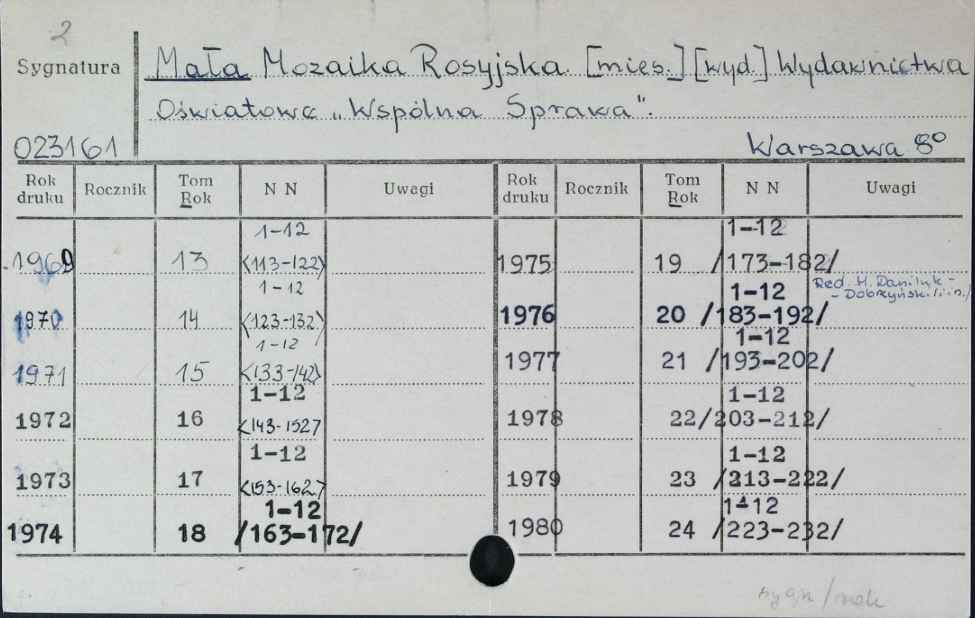 2
Sygnatura
Mała Mozaika Rosyjska. [mies.] [wyd.] Wydawnictwa
Oświatowe „Wspólna Sprawa".
023161
Warszawa 8°
Rok druku Rocznik Tom Rok N N Uwagi Rok druku Rocznik Tom Rok N N Uwagi
1-12 1-12
1969 13 <113-122> 1975 19 /173-182/
Red. H. Daniluk-
-Dobrzyński /i in./
1-12 1-12
1970 14 <123-132> 1976 20 /183-192/
1-12 1-12
1971 15 <133-142> 1977 21 /193-202/
1-12 1-12
1972 16 <143-152> 1978 22 /203-212/
1-12 1-12
1973 17 <153-162> 1979 23 /213-222/
1-12 1-12
1974 18 /163-172/ 1980 24 /223-232/